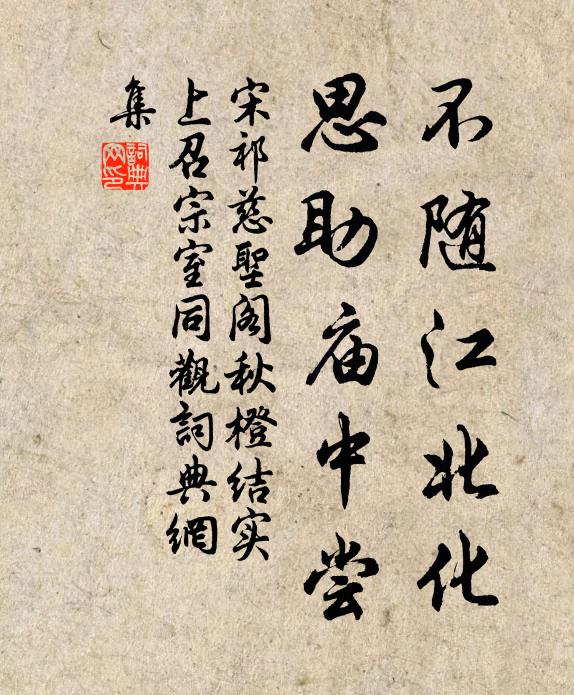 不随江北化
思助庙中尝
宋祁慈聖阁秋橙结实
上召宗室同觀詞典網
集
詞典网印